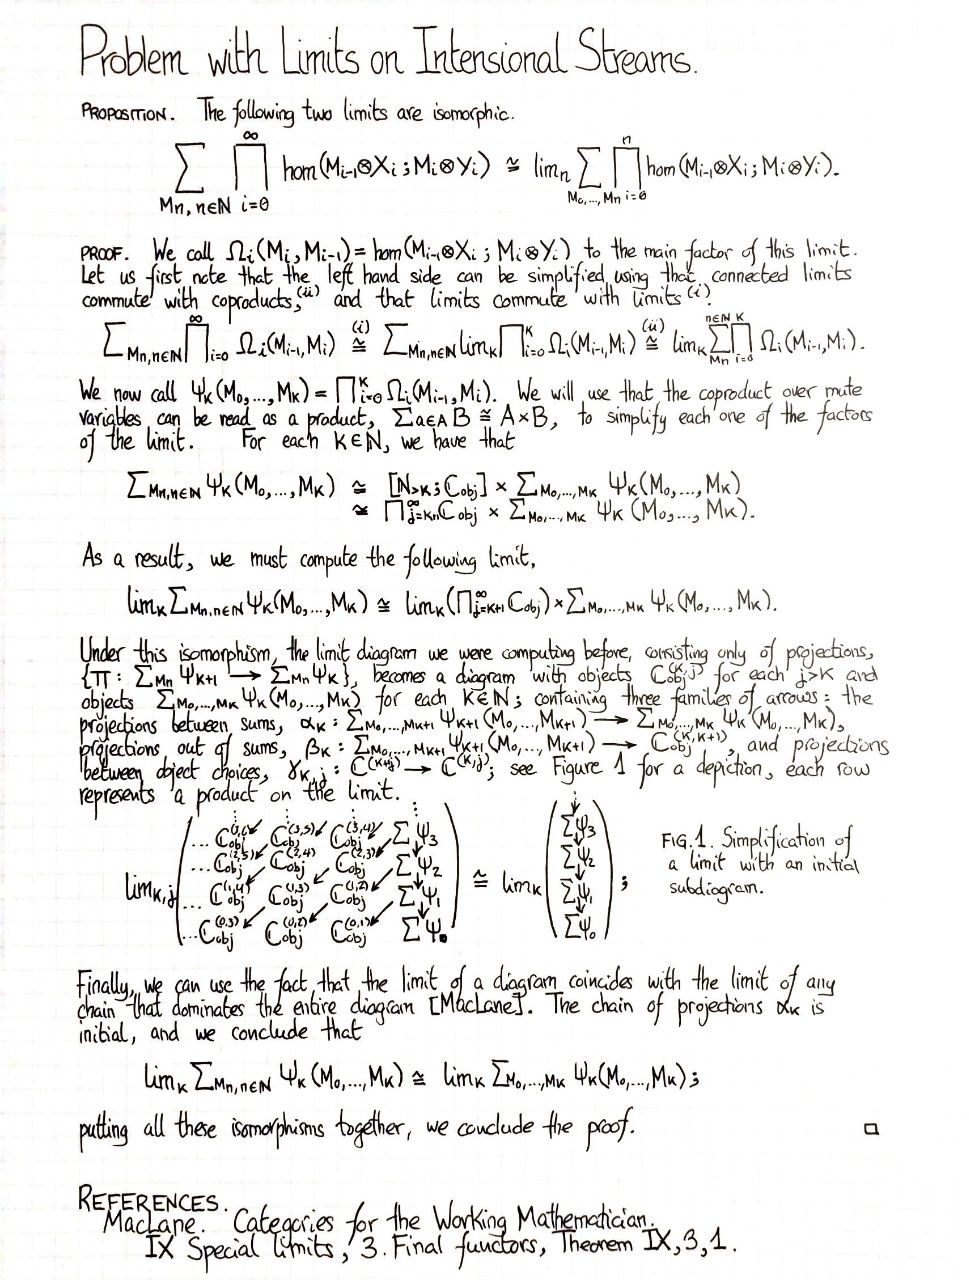 Problem with Limits on Intensional Streams.
PROPOSITION. The following two limits are isomorphic.
∑_{Mn, n∈N} ∏_{i=0}^{∞} hom(M_{i-1}⊗X_i ; M_i⊗Y_i) ≅ lim_n ∑_{M_0,...,M_n} ∏_{i=0}^{n} hom(M_{i-1}⊗X_i ; M_i⊗Y_i).
PROOF. We call Ω_i(M_i, M_{i-1}) = hom(M_{i-1}⊗X_i ; M_i⊗Y_i) to the main factor of this limit.
Let us first note that the left hand side can be simplified using that connected limits
commute with coproducts,^(ii) and that limits commute with limits^(i).
∑_{Mn,n∈N} ∏_{i=0}^{∞} Ω_i(M_{i-1},M_i) ≅^(i) ∑_{Mn,n∈N} lim_K ∏_{i=0}^{K} Ω_i(M_{i-1},M_i) ≅^(ii) lim_K ∑_{Mn}^{n∈N} ∏_{i=0}^{K} Ω_i(M_{i-1},M_i).
We now call Ψ_K(M_0,...,M_K) = ∏_{i=0}^{K} Ω_i(M_{i-1},M_i). We will use that the coproduct over mute
variables can be read as a product, ∑_{a∈A} B ≅ A×B, to simplify each one of the factors
of the limit. For each K∈N, we have that
∑_{Mn,n∈N} Ψ_K(M_0,...,M_K) ≅ [N_{>K} ; C_obj] × ∑_{M_0,...,M_K} Ψ_K(M_0,...,M_K)
≅ ∏_{j=K+1}^{∞} C_obj × ∑_{M_0,...,M_K} Ψ_K(M_0,...,M_K).
As a result, we must compute the following limit,
lim_K ∑_{Mn,n∈N} Ψ_K(M_0,...,M_K) ≅ lim_K (∏_{j=K+1}^{∞} C_obj) × ∑_{M_0,...,M_K} Ψ_K(M_0,...,M_K).
Under this isomorphism, the limit diagram we were computing before, consisting only of projections,
{π : ∑_{Mn} Ψ_{K+1} → ∑_{Mn} Ψ_K}, becomes a diagram with objects C_obj^(K,j) for each j>K and
objects ∑_{M_0,...,M_K} Ψ_K(M_0,...,M_K) for each K∈N; containing three families of arrows: the
projections between sums, α_K : ∑_{M_0,...,M_{K+1}} Ψ_{K+1}(M_0,...,M_{K+1}) → ∑_{M_0,...,M_K} Ψ_K(M_0,...,M_K),
projections out of sums, β_K : ∑_{M_0,...,M_{K+1}} Ψ_{K+1}(M_0,...,M_{K+1}) → C_obj^(K,K+1), and projections
between object choices, γ_{K,j} : C^(K+1,j) → C^(K,j); see Figure 1 for a depiction, each row
represents a product on the limit.
... C_obj^(3,6) C_obj^(3,5) C_obj^(3,4) ∑Ψ_3
... C_obj^(2,5) C_obj^(2,4) C_obj^(2,3) ∑Ψ_2
lim_{K,j} ... C_obj^(1,4) C_obj^(1,3) C_obj^(1,2) ∑Ψ_1
... C_obj^(0,3) C_obj^(0,2) C_obj^(0,1) ∑Ψ_0
≅ lim_K
∑Ψ_3
∑Ψ_2
∑Ψ_1
∑Ψ_0
;
FIG. 1. Simplification of
a limit with an initial
subdiagram.
Finally, we can use the fact that the limit of a diagram coincides with the limit of any
chain that dominates the entire diagram [MacLane]. The chain of projections α_K is
initial, and we conclude that
lim_K ∑_{Mn,n∈N} Ψ_K(M_0,...,M_K) ≅ lim_K ∑_{M_0,...,M_K} Ψ_K(M_0,...,M_K);
putting all these isomorphisms together, we conclude the proof. □
REFERENCES.
MacLane. Categories for the Working Mathematician.
IX Special limits, 3. Final functors, Theorem IX,3,1.